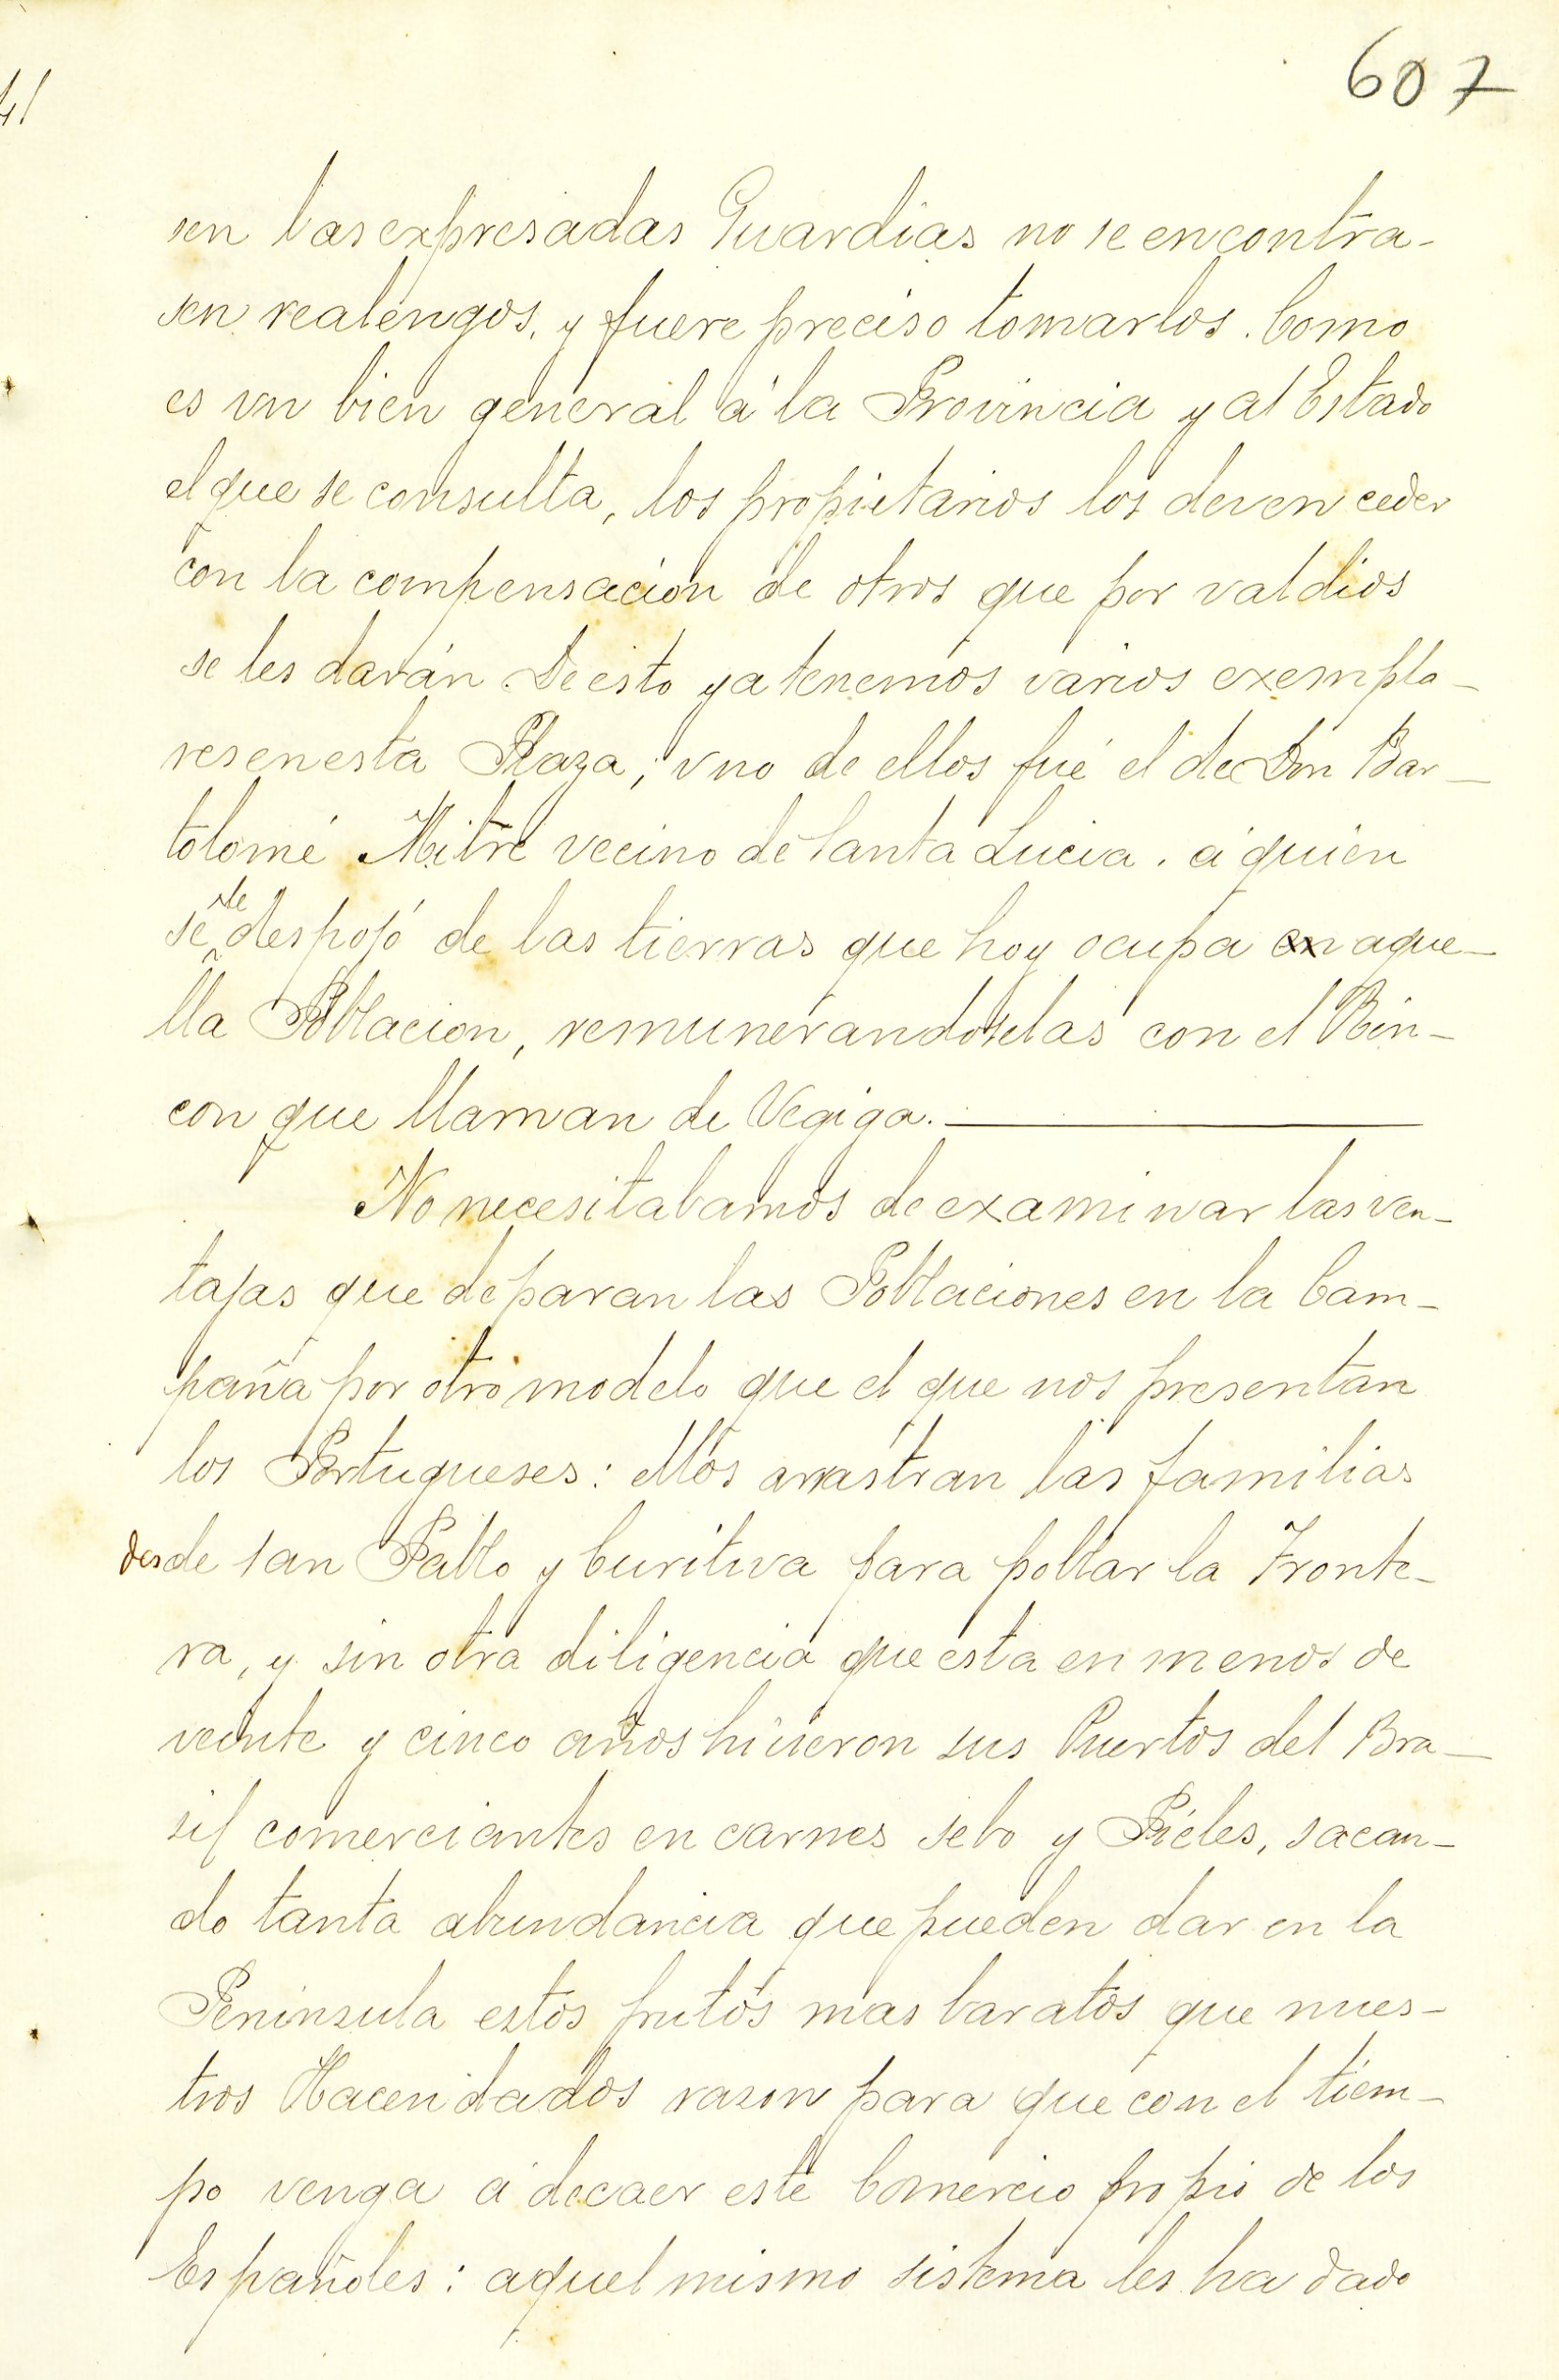 607
sen las expresadas Guardias no se encontra-
sen realengos, y fuere preciso tomarlos. Como
es vn bien general á la Provincia y al Estado
el que se consulta, los propietarios los deven ceder
con la compensacion de otros que por valdios
se les darán. De esto ya tenemos varios exempla-
res en esta Plaza; vno de ellos fué el de Don Bar-
tolomé Mitre vecino de Santa Lucia. á quien
se le despojó de las tierras que hoy ocupa aque-
lla Poblacion, remunerandoselas con el Rin-
con que llaman de Vegiga.
No necesitabamos de examinar las ven-
tajas que deparan las Poblaciones en la Cam-
paña por otro modelo que el que nos presentan
los Portugueses: ellos arrastran las familias
desde San Pablo y Curitiva para poblar la Fronte-
ra, y sin otra diligencia que esta en menos de
veinte y cinco años hicieron sus Puertos del Bra-
sil comerciantes en carnes sebo y Pieles, sacan-
do tanta abundancia que pueden dar en la
Peninsula estos frutos mas baratos que nues-
tros Hacendados razon para que con el tiem-
po venga á decaer este Comercio propio de los
Españoles: aquel mismo sistema les ha dado